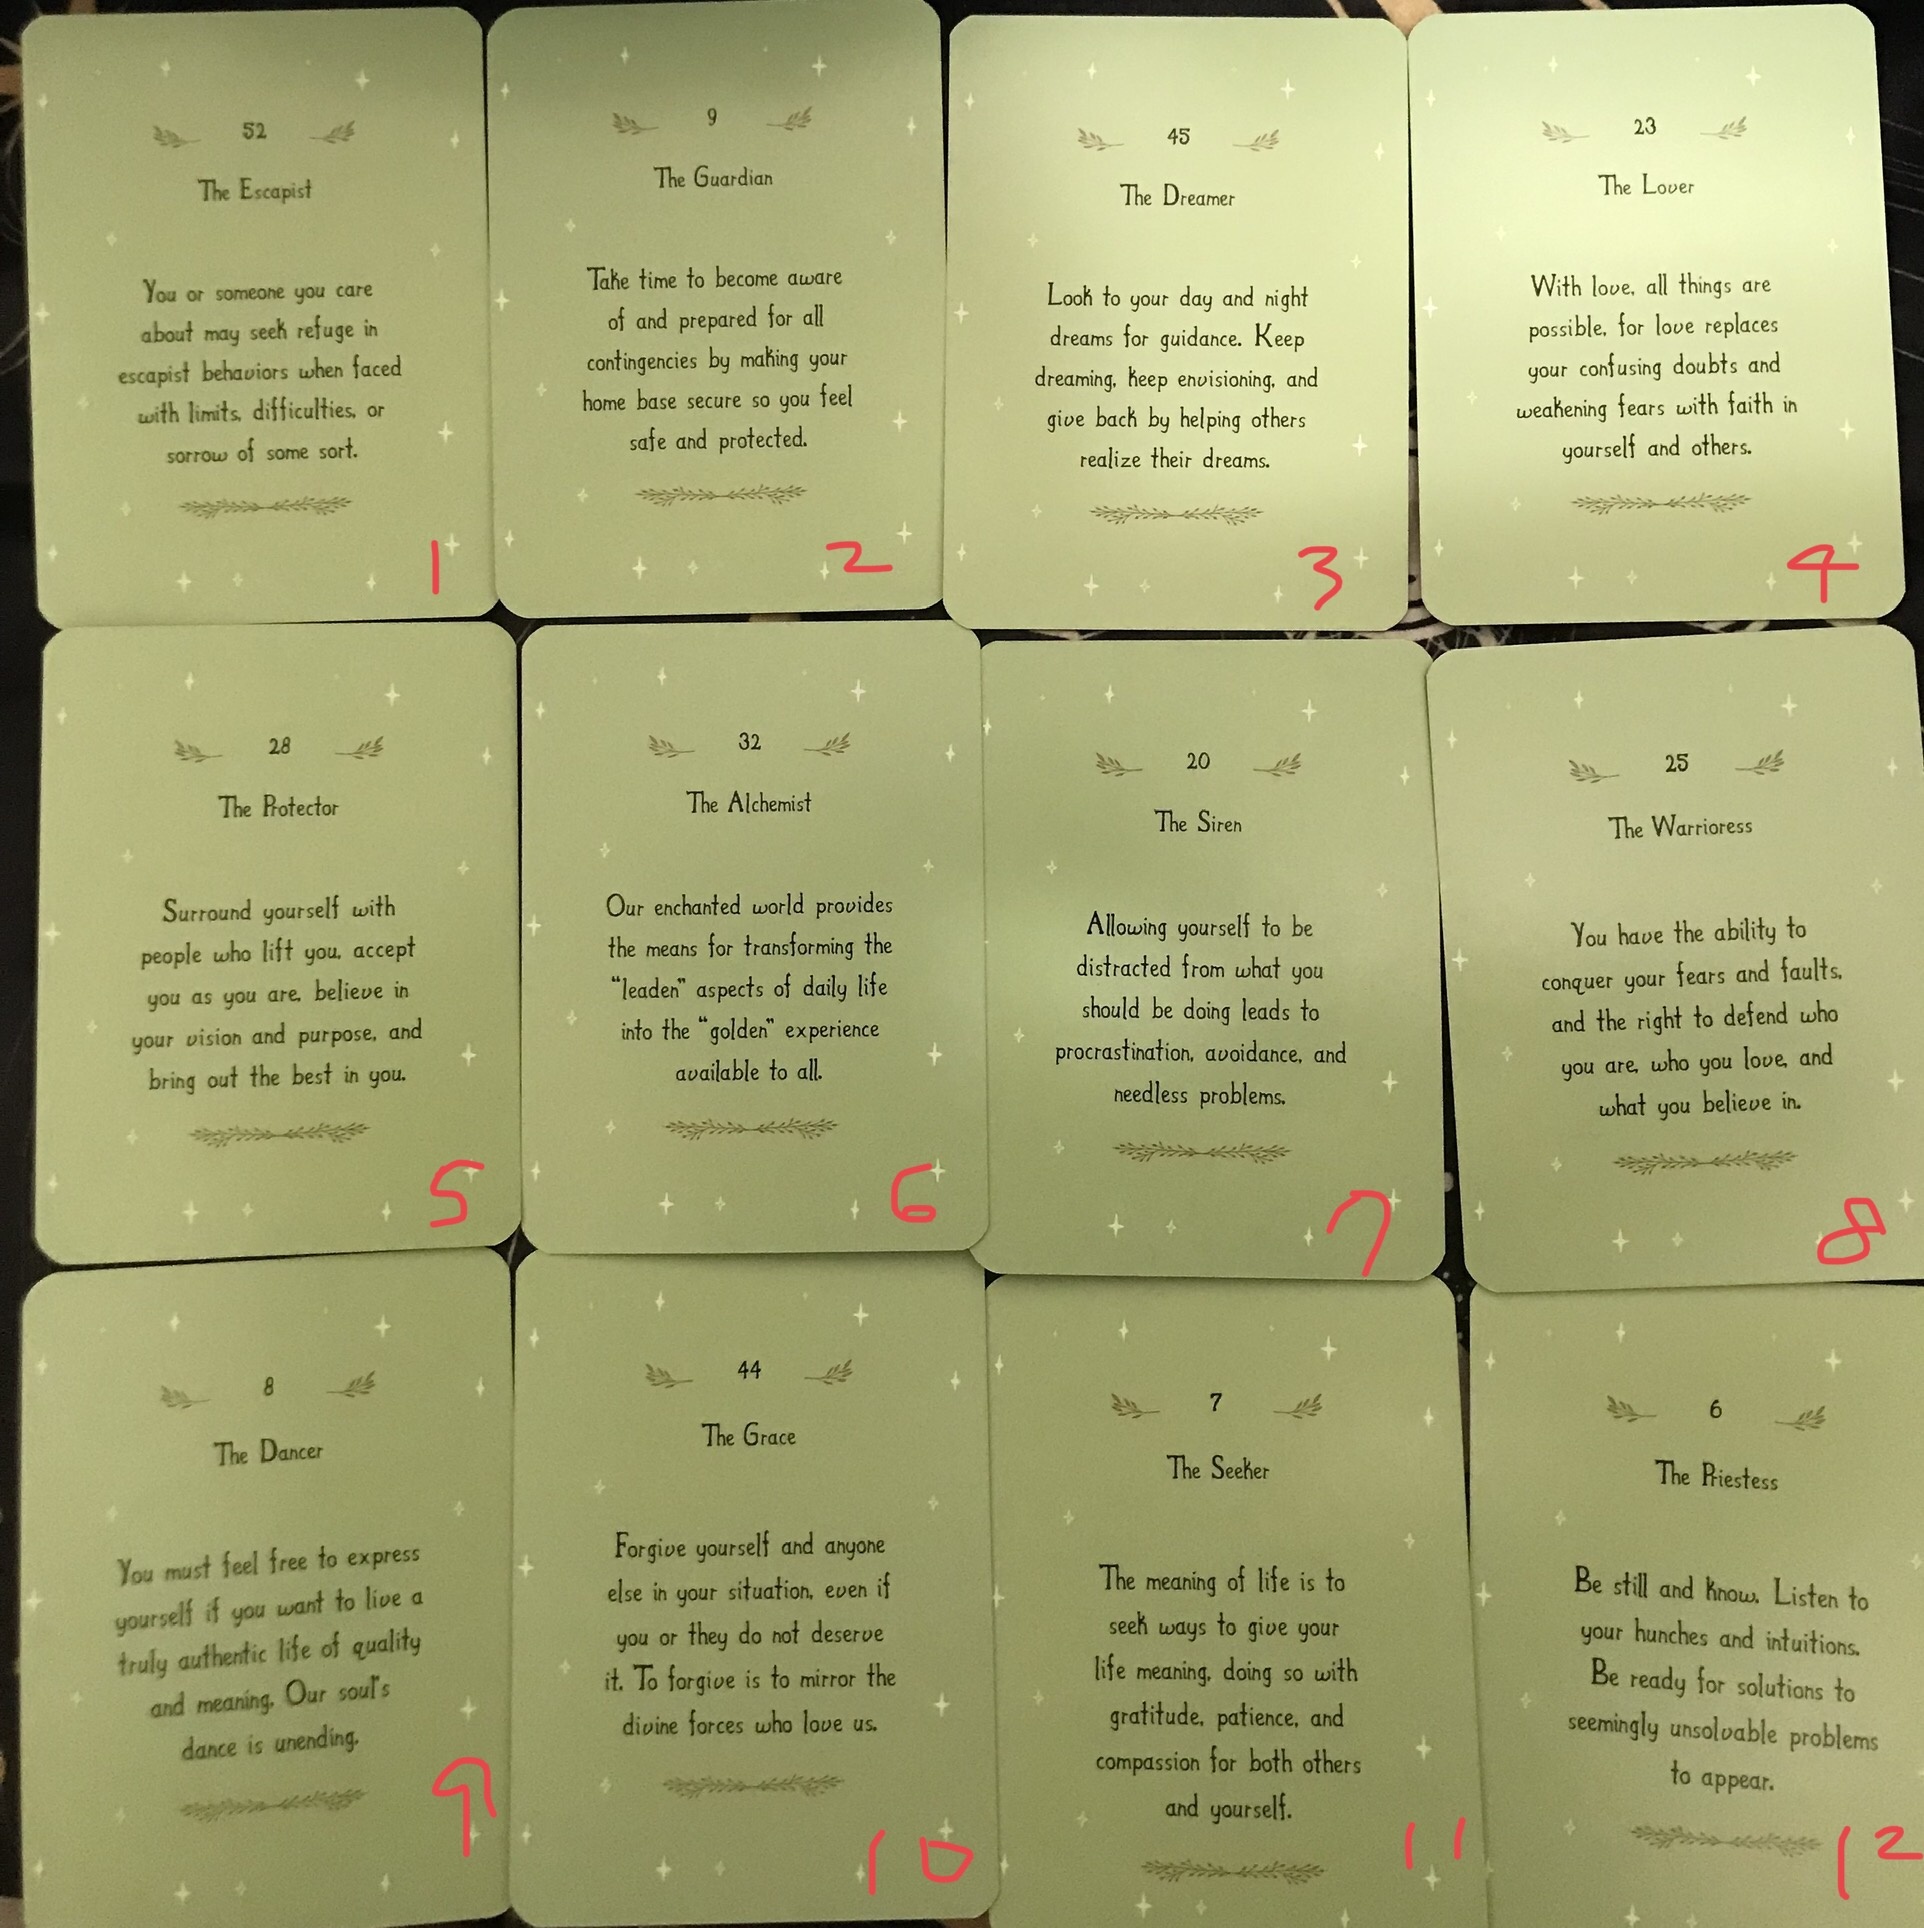 52
The Escapist
You or someone you care
about may seek refuge in
escapist behaviors when faced
with limits, difficulties, or
sorrow of some sort.
1
9
The Guardian
Take time to become aware
of and prepared for all
contingencies by making your
home base secure so you feel
safe and protected.
2
45
The Dreamer
Look to your day and night
dreams for guidance. Keep
dreaming, keep envisioning, and
give back by helping others
realize their dreams.
3
23
The Lover
With love, all things are
possible, for love replaces
your confusing doubts and
weakening fears with faith in
yourself and others.
4
28
The Protector
Surround yourself with
people who lift you, accept
you as you are, believe in
your vision and purpose, and
bring out the best in you.
5
32
The Alchemist
Our enchanted world provides
the means for transforming the
“leaden” aspects of daily life
into the “golden” experience
available to all.
6
20
The Siren
Allowing yourself to be
distracted from what you
should be doing leads to
procrastination, avoidance, and
needless problems.
7
25
The Warrioress
You have the ability to
conquer your fears and faults,
and the right to defend who
you are, who you love, and
what you believe in.
8
8
The Dancer
You must feel free to express
yourself if you want to live a
truly authentic life of quality
and meaning. Our soul's
dance is unending.
9
44
The Grace
Forgive yourself and anyone
else in your situation, even if
you or they do not deserve
it. To forgive is to mirror the
divine forces who love us.
10
7
The Seeker
The meaning of life is to
seek ways to give your
life meaning, doing so with
gratitude, patience, and
compassion for both others
and yourself.
11
6
The Priestess
Be still and know. Listen to
your hunches and intuitions.
Be ready for solutions to
seemingly unsolvable problems
to appear.
12